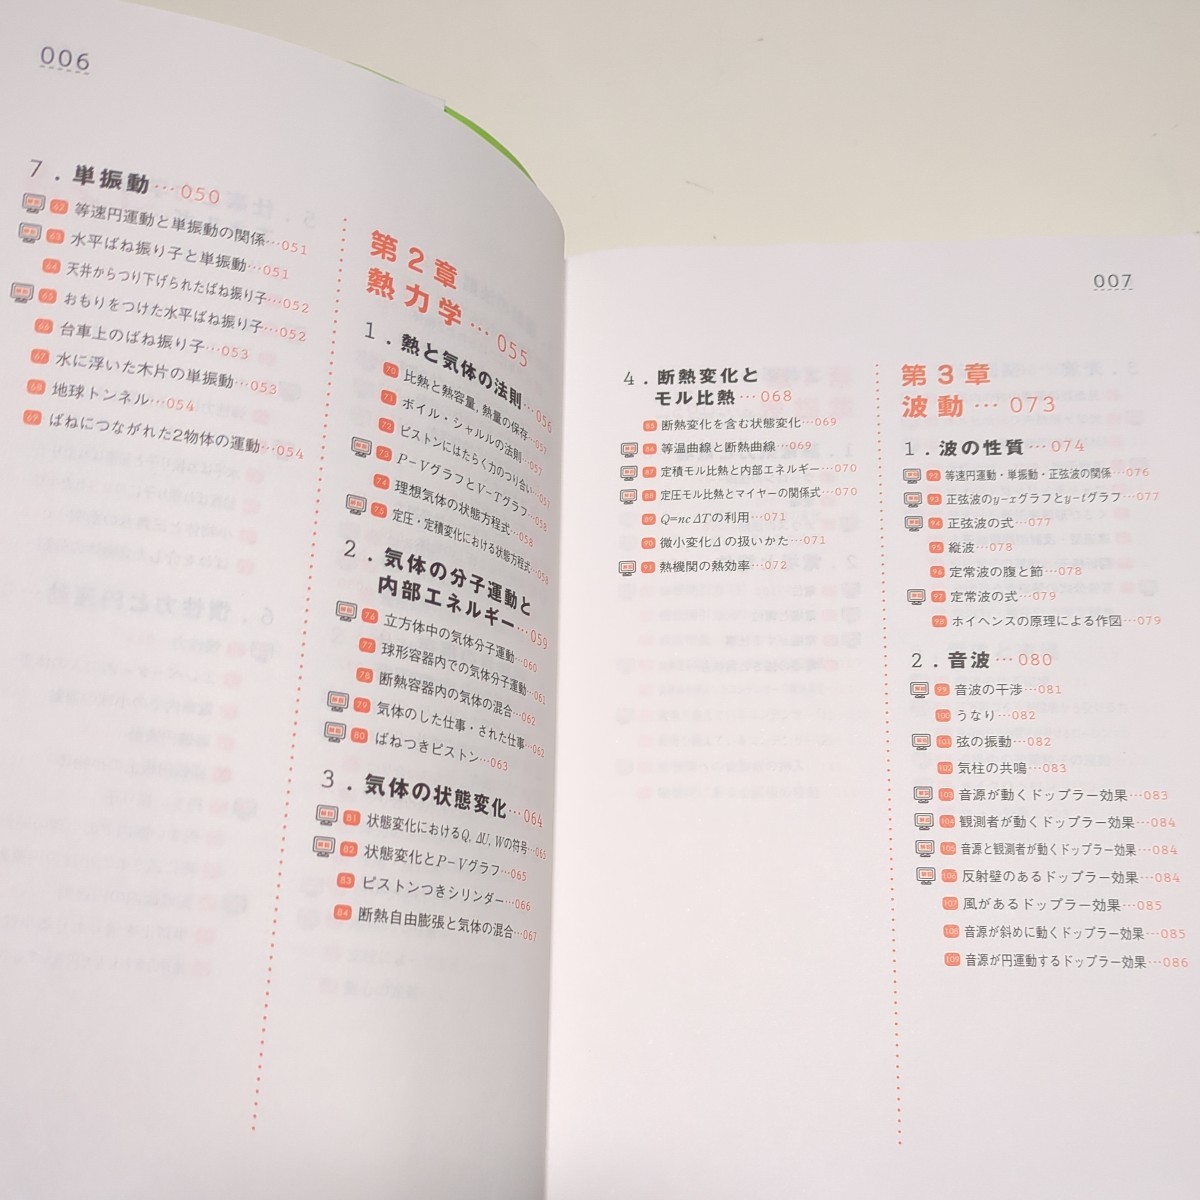 006
7．単振動…050
解説 62 等速円運動と単振動の関係…051
解説 63 水平ばね振り子と単振動…051
64 天井からつり下げられたばね振り子…052
解説 65 おもりをつけた水平ばね振り子…052
66 台車上のばね振り子…053
67 水に浮いた木片の単振動…053
68 地球トンネル…054
69 ばねにつながれた2物体の運動…054
第2章
熱力学…055
1．熱と気体の法則…056
70 比熱と熱容量，熱量の保存…057
71 ボイル・シャルルの法則…057
72 ピストンにはたらく力のつり合い…057
解説 73 P−VグラフとV−Tグラフ…058
74 理想気体の状態方程式…058
解説 75 定圧・定積変化における状態方程式…058
2．気体の分子運動と
内部エネルギー…059
解説 76 立方体中の気体分子運動…060
77 球形容器内での気体分子運動…061
78 断熱容器内の気体の混合…062
解説 79 気体のした仕事・された仕事…062
解説 80 ばねつきピストン…063
3．気体の状態変化…064
解説 81 状態変化におけるQ, ΔU, Wの符号…065
解説 82 状態変化とP−Vグラフ…065
83 ピストンつきシリンダー…066
84 断熱自由膨張と気体の混合…067
007
4．断熱変化と
モル比熱…068
85 断熱変化を含む状態変化…069
解説 86 等温曲線と断熱曲線…069
解説 87 定積モル比熱と内部エネルギー…070
解説 88 定圧モル比熱とマイヤーの関係式…070
89 Q=ncΔTの利用…071
90 微小変化Δの扱いかた…071
解説 91 熱機関の熱効率…072
第3章
波動…073
1．波の性質…074
解説 92 等速円運動・単振動・正弦波の関係…076
解説 93 正弦波のy−xグラフとy−tグラフ…077
解説 94 正弦波の式…077
95 縦波…078
96 定常波の腹と節…078
解説 97 定常波の式…079
98 ホイヘンスの原理による作図…079
2．音波…080
解説 99 音波の干渉…081
100 うなり…082
解説 101 弦の振動…082
102 気柱の共鳴…083
解説 103 音源が動くドップラー効果…083
解説 104 観測者が動くドップラー効果…084
解説 105 音源と観測者が動くドップラー効果…084
解説 106 反射壁のあるドップラー効果…084
107 風があるドップラー効果…085
108 音源が斜めに動くドップラー効果…085
109 音源が円運動するドップラー効果…086